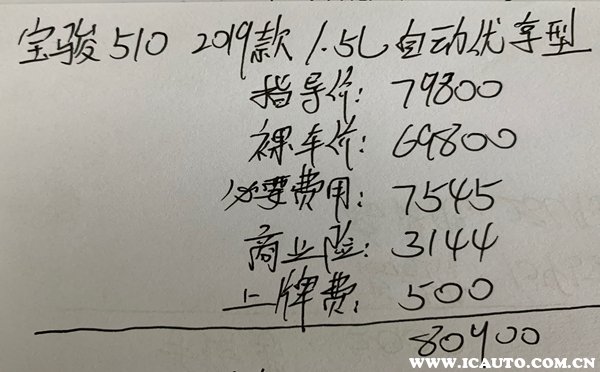 宝骏510 2019款 1.5L自动优享型
指导价: 79800
裸车价: 69800
必要费用: 7545
商业险: 3144
上牌费: 500
80900
WWW.ICAUTO.COM.CN